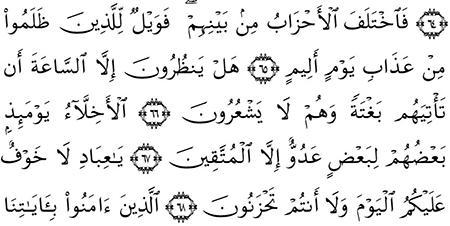 ﴿٦٤﴾ فَٱخْتَلَفَ ٱلْأَحْزَابُ مِنۢ بَيْنِهِمْ ۖ فَوَيْلٌ لِّلَّذِينَ ظَلَمُوا۟
مِنْ عَذَابِ يَوْمٍ أَلِيمٍ ﴿٦٥﴾ هَلْ يَنظُرُونَ إِلَّا ٱلسَّاعَةَ أَن
تَأْتِيَهُم بَغْتَةً وَهُمْ لَا يَشْعُرُونَ ﴿٦٦﴾ ٱلْأَخِلَّآءُ يَوْمَئِذٍۭ
بَعْضُهُمْ لِبَعْضٍ عَدُوٌّ إِلَّا ٱلْمُتَّقِينَ ﴿٦٧﴾ يَـٰعِبَادِ لَا خَوْفٌ
عَلَيْكُمُ ٱلْيَوْمَ وَلَآ أَنتُمْ تَحْزَنُونَ ﴿٦٨﴾ ٱلَّذِينَ ءَامَنُوا۟ بِـَٔايَـٰتِنَا